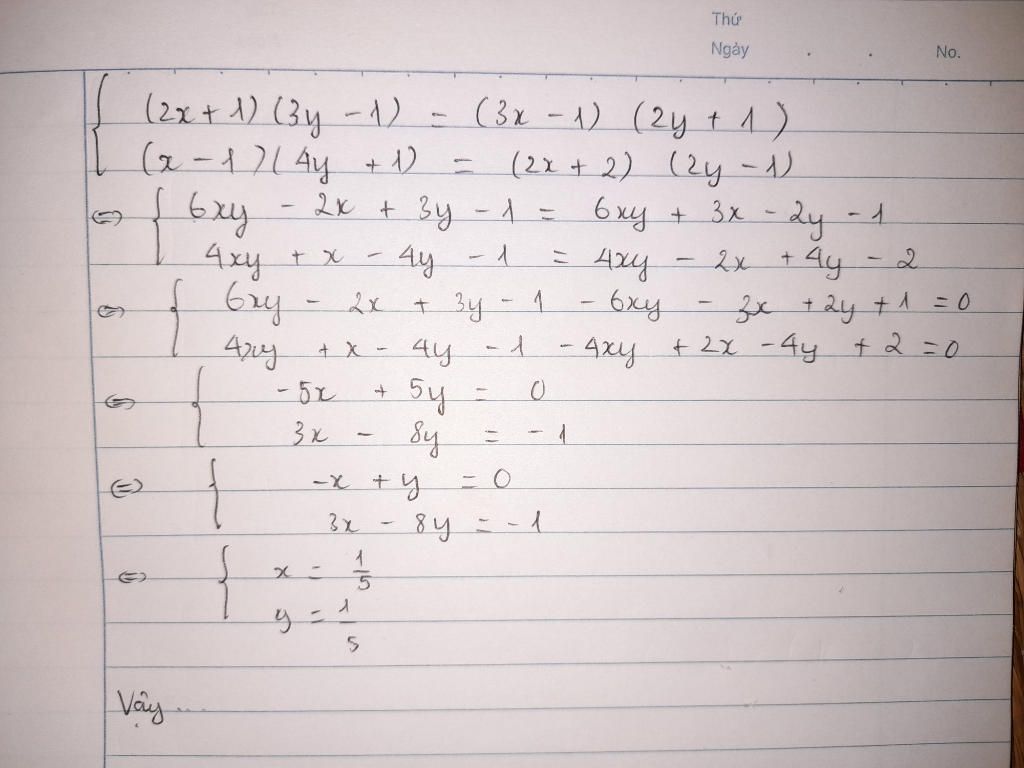 Thứ
Ngày . . No.
{ (2x + 1) (3y - 1) = (3x - 1) (2y + 1)
(x - 1)( 4y + 1) = (2x + 2) (2y - 1)
⇔ { 6xy - 2x + 3y - 1 = 6xy + 3x - 2y - 1
4xy + x - 4y - 1 = 4xy - 2x + 4y - 2
⇔ { 6xy - 2x + 3y - 1 - 6xy - 3x + 2y + 1 = 0
4xy + x - 4y - 1 - 4xy + 2x - 4y + 2 = 0
⇔ { -5x + 5y = 0
3x - 8y = -1
⇔ { -x + y = 0
3x - 8y = -1
⇔ { x = 1/5
y = 1/5
Vậy ...